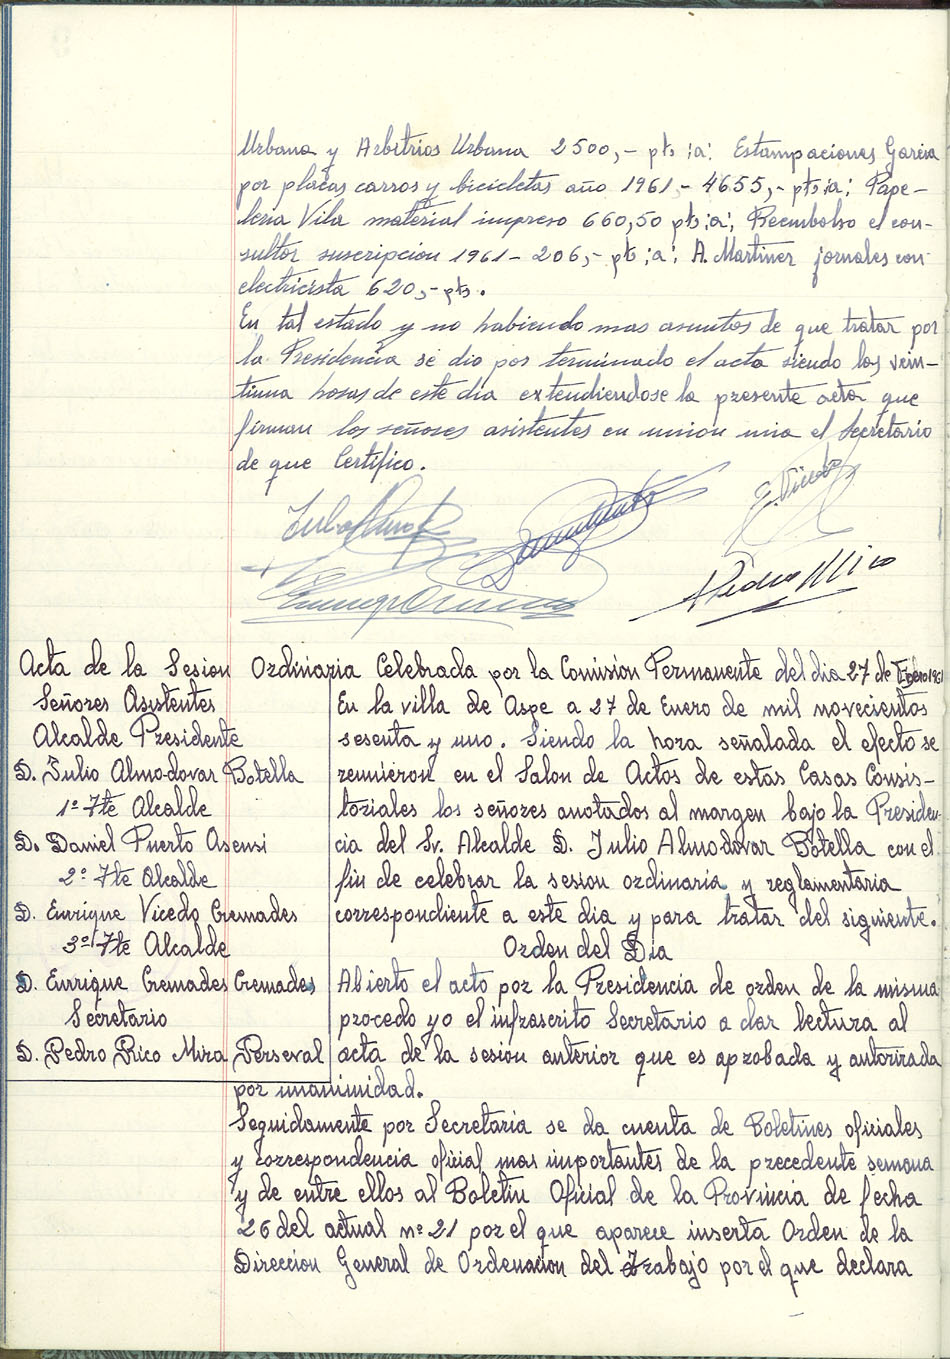 Urbana y Arbitrios Urbana 2500,- pts ;a; Estampaciones Garcia
por placas carros y bicicletas año 1961,- 4655,- pts ;a; Pape-
leria Vila material impreso 660,50 pts ;a; Reembolso el con-
sultor suscripcion 1961- 206,- pts ;a; A. Martinez jornales con
electricista 620,- pts.
En tal estado y no habiendo mas asuntos de que tratar por
la Presidencia se dio por terminado el acta siendo las vein-
tiuna horas de este dia extendiendose la presente acta que
firman los señores asistentes en union mia el Secretario
de que Certifico.
E. Vicedo
Pedro Mira
Acta de la Sesion Ordinaria Celebrada por la Comision Permanente del dia 27 de Enero 1961
Señores Asistentes
Alcalde Presidente
D. Julio Almodovar Botella
1º Tte Alcalde
D. Daniel Puerto Asensi
2º Tte Alcalde
D. Enrique Vicedo Cremades
3º Tte Alcalde
D. Enrrique Cremades Cremades
Secretario
D. Pedro Rico Mira Perseval
En la villa de Aspe a 27 de Enero de mil novecientos
sesenta y uno. Siendo la hora señalada el efecto se
reunieron en el Salon de Actos de estas Casas Consis-
toriales los señores anotados al margen bajo la Presiden-
cia del Sr. Alcalde D. Julio Almodovar Botella con el
fin de celebrar la sesion ordinaria y reglamentaria
correspondiente a este dia y para tratar del siguiente.
Orden del Dia
Abierto el acto por la Presidencia de orden de la misma
procedo yo el infrascrito Secretario a dar lectura al
acta de la sesion anterior que es aprobada y autorizada
por unanimidad.
Seguidamente por Secretaria se da cuenta de Boletines oficiales
y correspondencia oficial mas importantes de la precedente semana
y de entre ellos al Boletin Oficial de la Provincia de fecha
26 del actual nº 21 por el que aparece inserta Orden de la
Direccion General de Ordenacion del Trabajo por el que declara